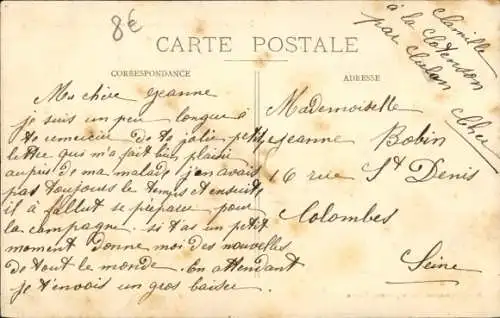 8€
Camille
à la Clotenson
par Culan
Cher
CARTE POSTALE
CORRESPONDANCE
ADRESSE
Ma chère Jeanne
je suis un peu longue à
te remercier de ta jolie petite
lettre qui m'a fait bien plaisir
auprès de ma malade j'en avais
pas toujours le temps et ensuite
il à fallut se préparer pour
la campagne. si t'as un petit
moment donne moi des nouvelles
de tout le monde. En attendant
je t'envois un gros baiser
Mademoiselle
Jeanne Bobin
16 rue St Denis
Colombes
Seine